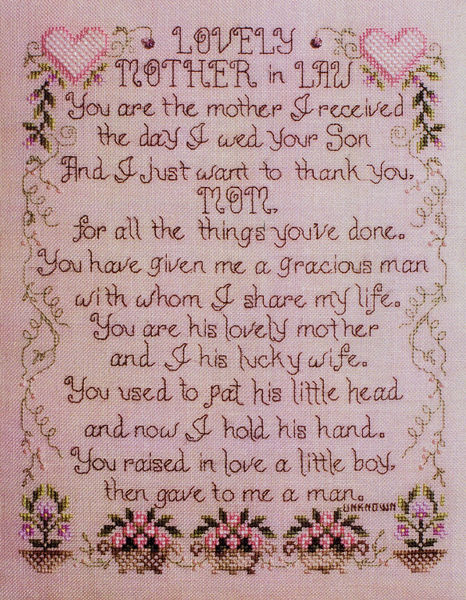 LOVELY
MOTHER in LAW
You are the mother I received
the day I wed your Son
And I just want to thank you,
MOM,
for all the things you've done.
You have given me a gracious man
with whom I share my life.
You are his lovely mother
and I his lucky wife.
You used to pat his little head
and now I hold his hand.
You raised in love a little boy,
then gave to me a man.
UNKNOWN